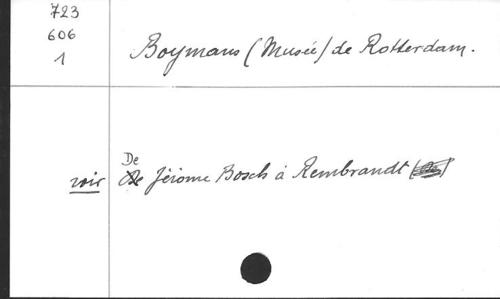 723
606
1
Boymans (Musée) de Rotterdam.
De
voir Jérome Bosch à Rembrandt